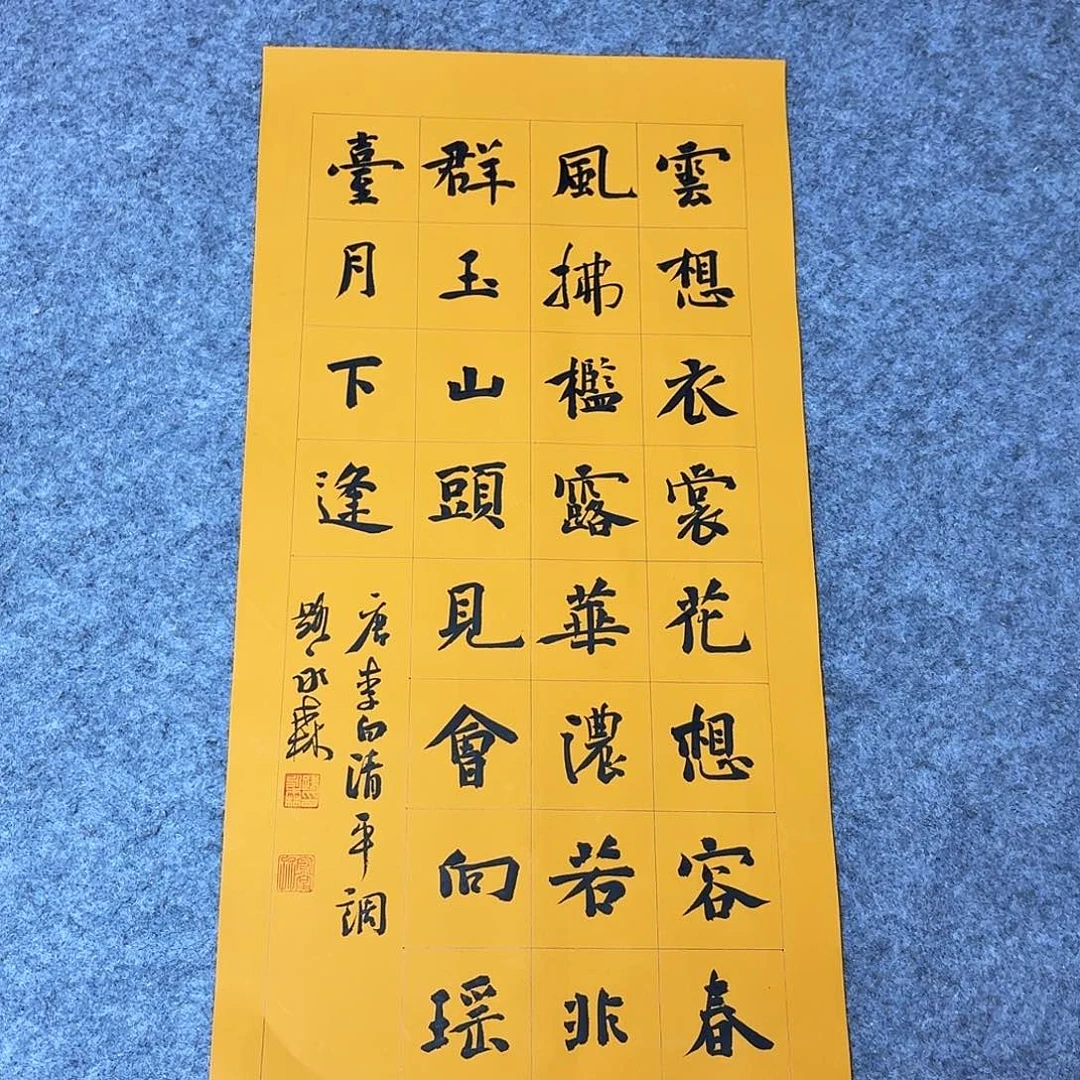 雲想衣裳花想容春
風拂檻露華濃若非
群玉山頭見會向瑶
臺月下逢
唐李白清平調
永森